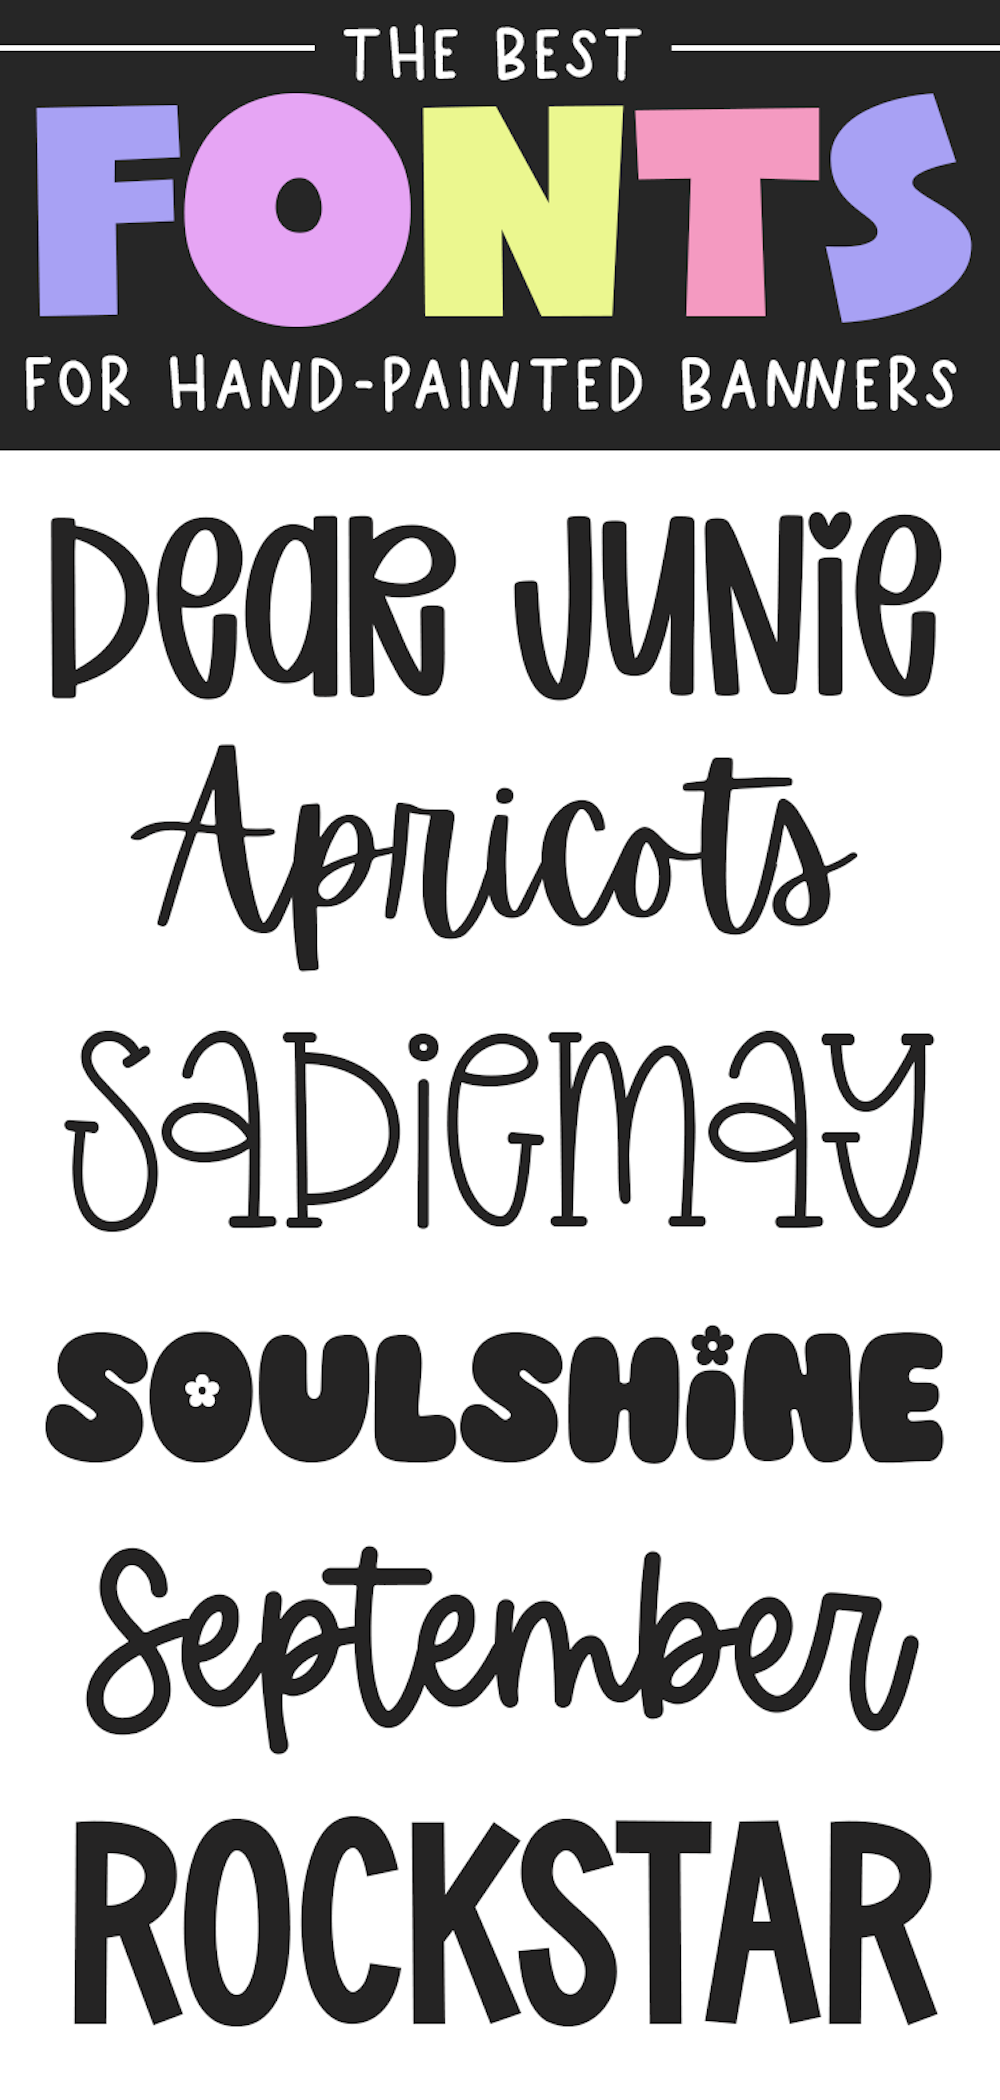 THE BEST
FONTS
FOR HAND-PAINTED BANNERS
DeaR JUNie
Apricots
SaDiemay
SOULSHiNE
September
ROCKSTAR